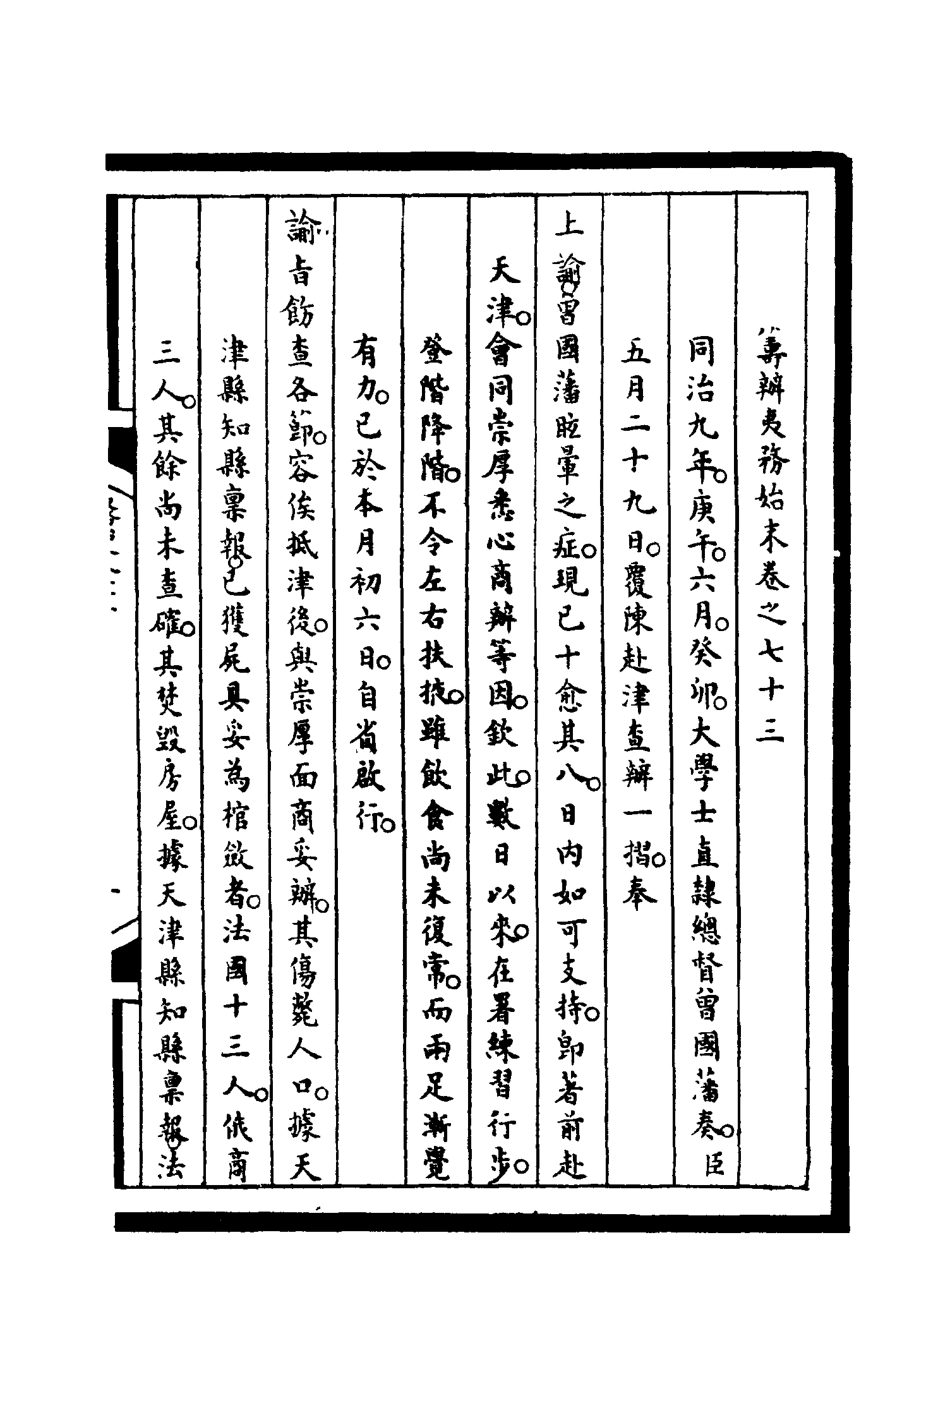 籌辦夷務始末卷之七十三
同治九年。庚午。六月。癸卯。大學士直隸總督曾國藩奏。臣
五月二十九日。覆陳赴津查辦一摺。奉
上諭。曾國藩眩暈之症。現已十愈其八。日內如可支持。即著前赴
天津。會同崇厚悉心商辦等因。欽此。數日以來。在署練習行步。
登階降階。不令左右扶掖。雖飲食尚未復常。而兩足漸覺
有力。已於本月初六日。自省啟行。
諭旨飭查各節。容俟抵津後。與崇厚面商妥辦。其傷斃人口。據天
津縣知縣稟報。已獲屍具妥為棺斂者。法國十三人。俄商
三人。其餘尚未查確。其焚毀房屋。據天津縣知縣稟報。法